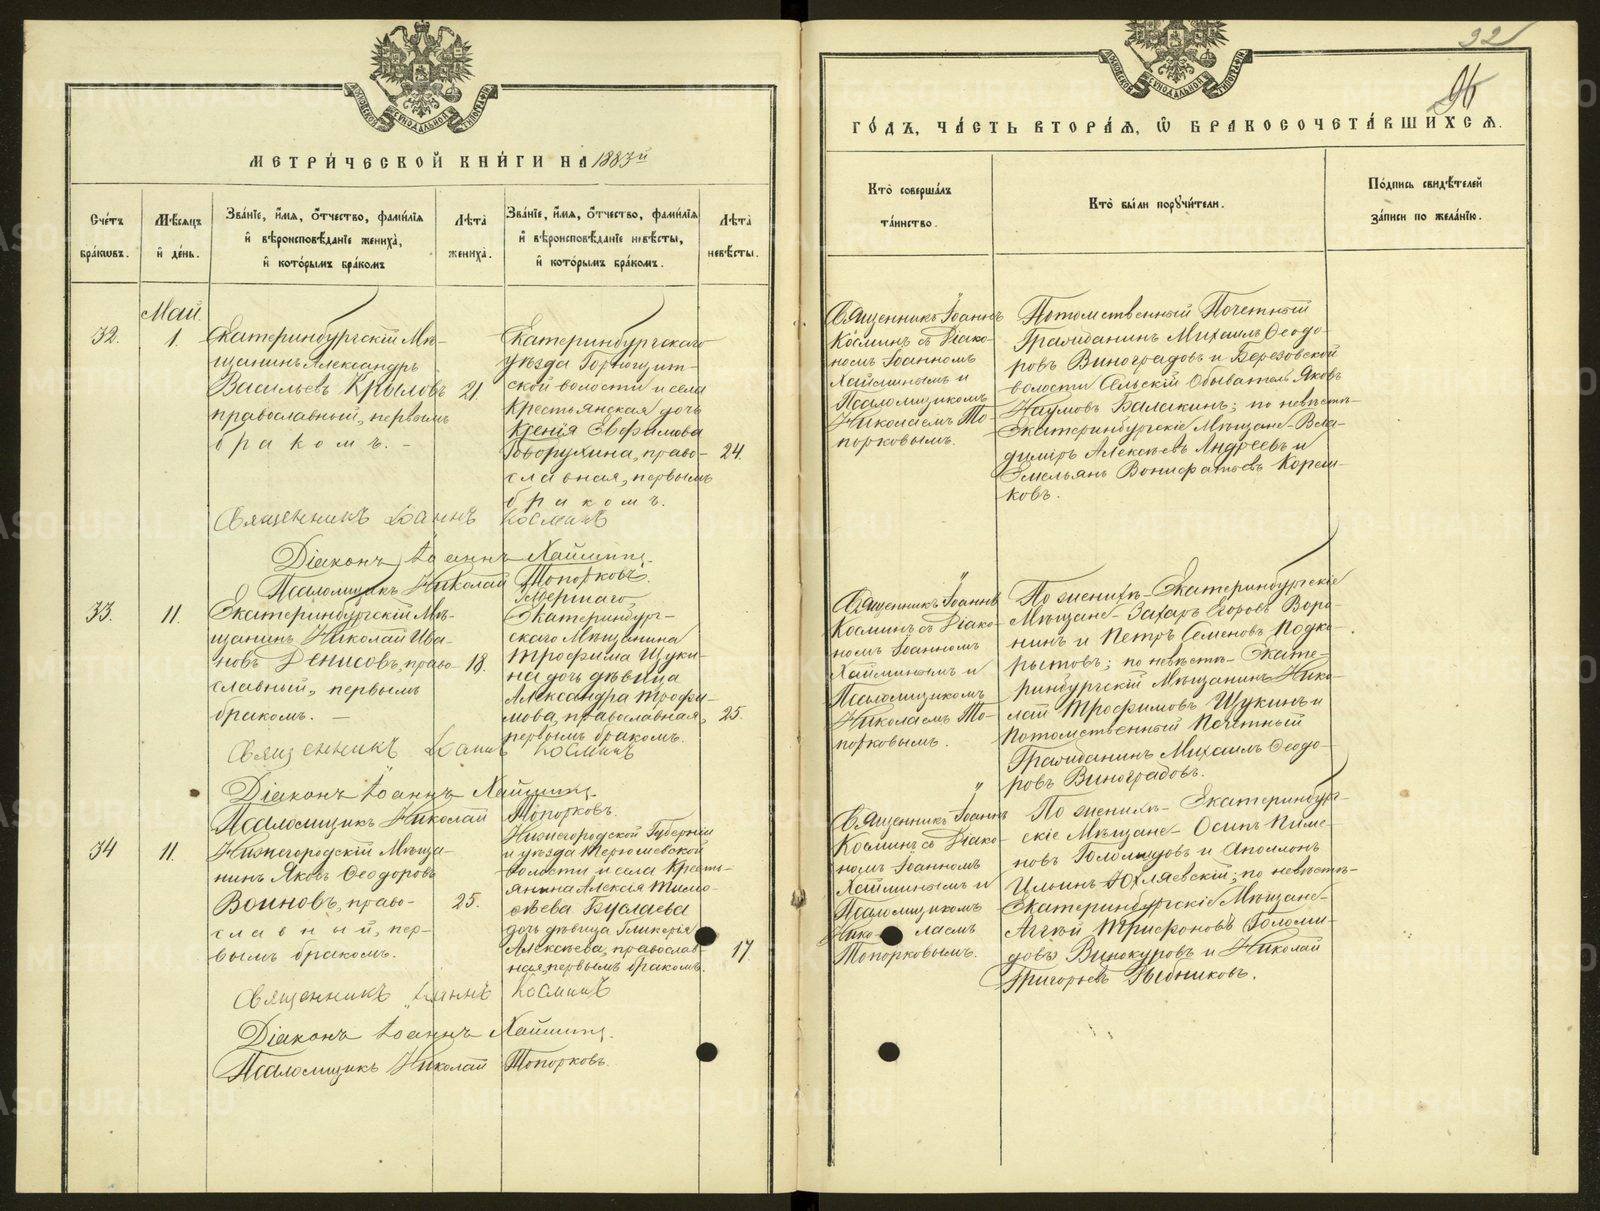 МЕТРИ́ЧЕСКОЙ КНИ́ГИ НА 1883й
Сче́тъ бра́кѡвъ.
Мѣ́сяцъ и҆ де́нь.
Зва́нїе, и҆́мя, ѻ҆́тчество, фами́лїя и҆ вѣроисповѣ́данїе жениха̀, и҆ кото́рымъ бра́комъ
Лѣ́та жениха̀.
Зва́нїе, и҆́мя, ѻ҆́тчество, фами́лїя и҆ вѣроисповѣ́данїе невѣ́сты, и҆ кото́рымъ бра́комъ.
Лѣ́та невѣ́сты.
Май
32.
1.
Екатеринбургскій Мѣ-
щанинъ Александръ
Васильевъ Крыловъ
православный, первымъ
бракомъ. -
21.
Екатеринбургскаго
уѣзда Горнощит-
ской волости и села
Крестьянская дочь
Ксенія Евфимова
Говорухина, право-
славная, первымъ
бракомъ.
24.
Священникъ Іоаннъ Косминъ
Діаконъ Іоаннъ Хайминъ.
Псаломщикъ Николай Топорковъ.
33.
11.
Екатеринбургскій Мѣ-
щанинъ Николай Ива-
новъ Денисовъ, право-
славный, первымъ
бракомъ. -
18.
Екатеринбург-
скаго Мѣщанина
Трофима Щуки-
на дочь дѣвица
Александра Трофи-
мова, православная,
первымъ бракомъ.
25.
Священникъ Іоаннъ Косминъ
Діаконъ Іоаннъ Хайминъ.
Псаломщикъ Николай Топорковъ.
34
11.
Нижегородскій Мѣща-
нинъ Яковъ Ѳеодоровъ
Воиновъ, право-
славный, пер-
вымъ бракомъ.
25.
Нижегородской Губерніи
и уѣзда Терюшевской
волости и села Кресть-
янина Алексія Тимо-
ѳѣева Буслаева
дочь дѣвица Гликерія
Алексѣева, православ
ная, первымъ бракомъ.
17.
Священникъ Іоаннъ Косминъ
Діаконъ Іоаннъ Хайминъ.
Псаломщикъ Николай Топорковъ.
96
ГО́ДЪ, ЧА́СТЬ ВТОРА́Я, Ѡ҆ БРАКОСОЧЕТА́ВШИХСЯ.
Кто̀ соверша́лъ та́инство.
Кто̀ бы́ли порꙋчи́тели.
По́дпись свидѣ́телей за́писи по жела́нїю.
Священникъ Іоаннъ
Косминъ съ Діако-
номъ Іоанномъ
Хайминымъ и
Псаломщикомъ
Николаемъ То-
порковымъ.
Потомственный Почетный
Гражданинъ Михаилъ Ѳеодо-
ровъ Виноградовъ и Березовской
волости Сельскій Обыватель Яковъ
Наумовъ Балакинъ; по невѣстѣ-
Екатеринбургскіе Мѣщане- Вла-
димiръ Алексѣевъ Андреевъ и
Емельянъ Вонифатьевъ Кореш-
ковъ.
Священникъ Іоаннъ
Косминъ съ Діако-
номъ Іоанномъ
Хайминымъ и
Псаломщикомъ
Николаемъ То-
порковымъ.
По женихѣ- Екатеринбургскіе
Мѣщане- Захаръ Егоровъ Воро-
нинъ и Петръ Семеновъ Подко-
рытовъ; по невѣстѣ- Екате-
ринбургскій Мѣщанинъ Нико-
лай Трофимовъ Щукинъ и
Потомственный Почетный
Гражданинъ Михаилъ Ѳеодо-
ровъ Виноградовъ.
Священникъ Іоаннъ
Косминъ съ Діако-
номъ Іоанномъ
Хайминымъ и
Псаломщикомъ
Николаемъ
Топорковымъ.
По женихѣ- Екатеринбург-
скіе Мѣщане- Осипъ Пиме-
новъ и Аполлонъ
Ильинъ; по невѣстѣ-
Екатеринбургскіе Мѣщане-
Трифоновъ
Винокуровъ и Николай
Григорьевъ Рыбниковъ.
METRIKI.GASO-URAL.RU